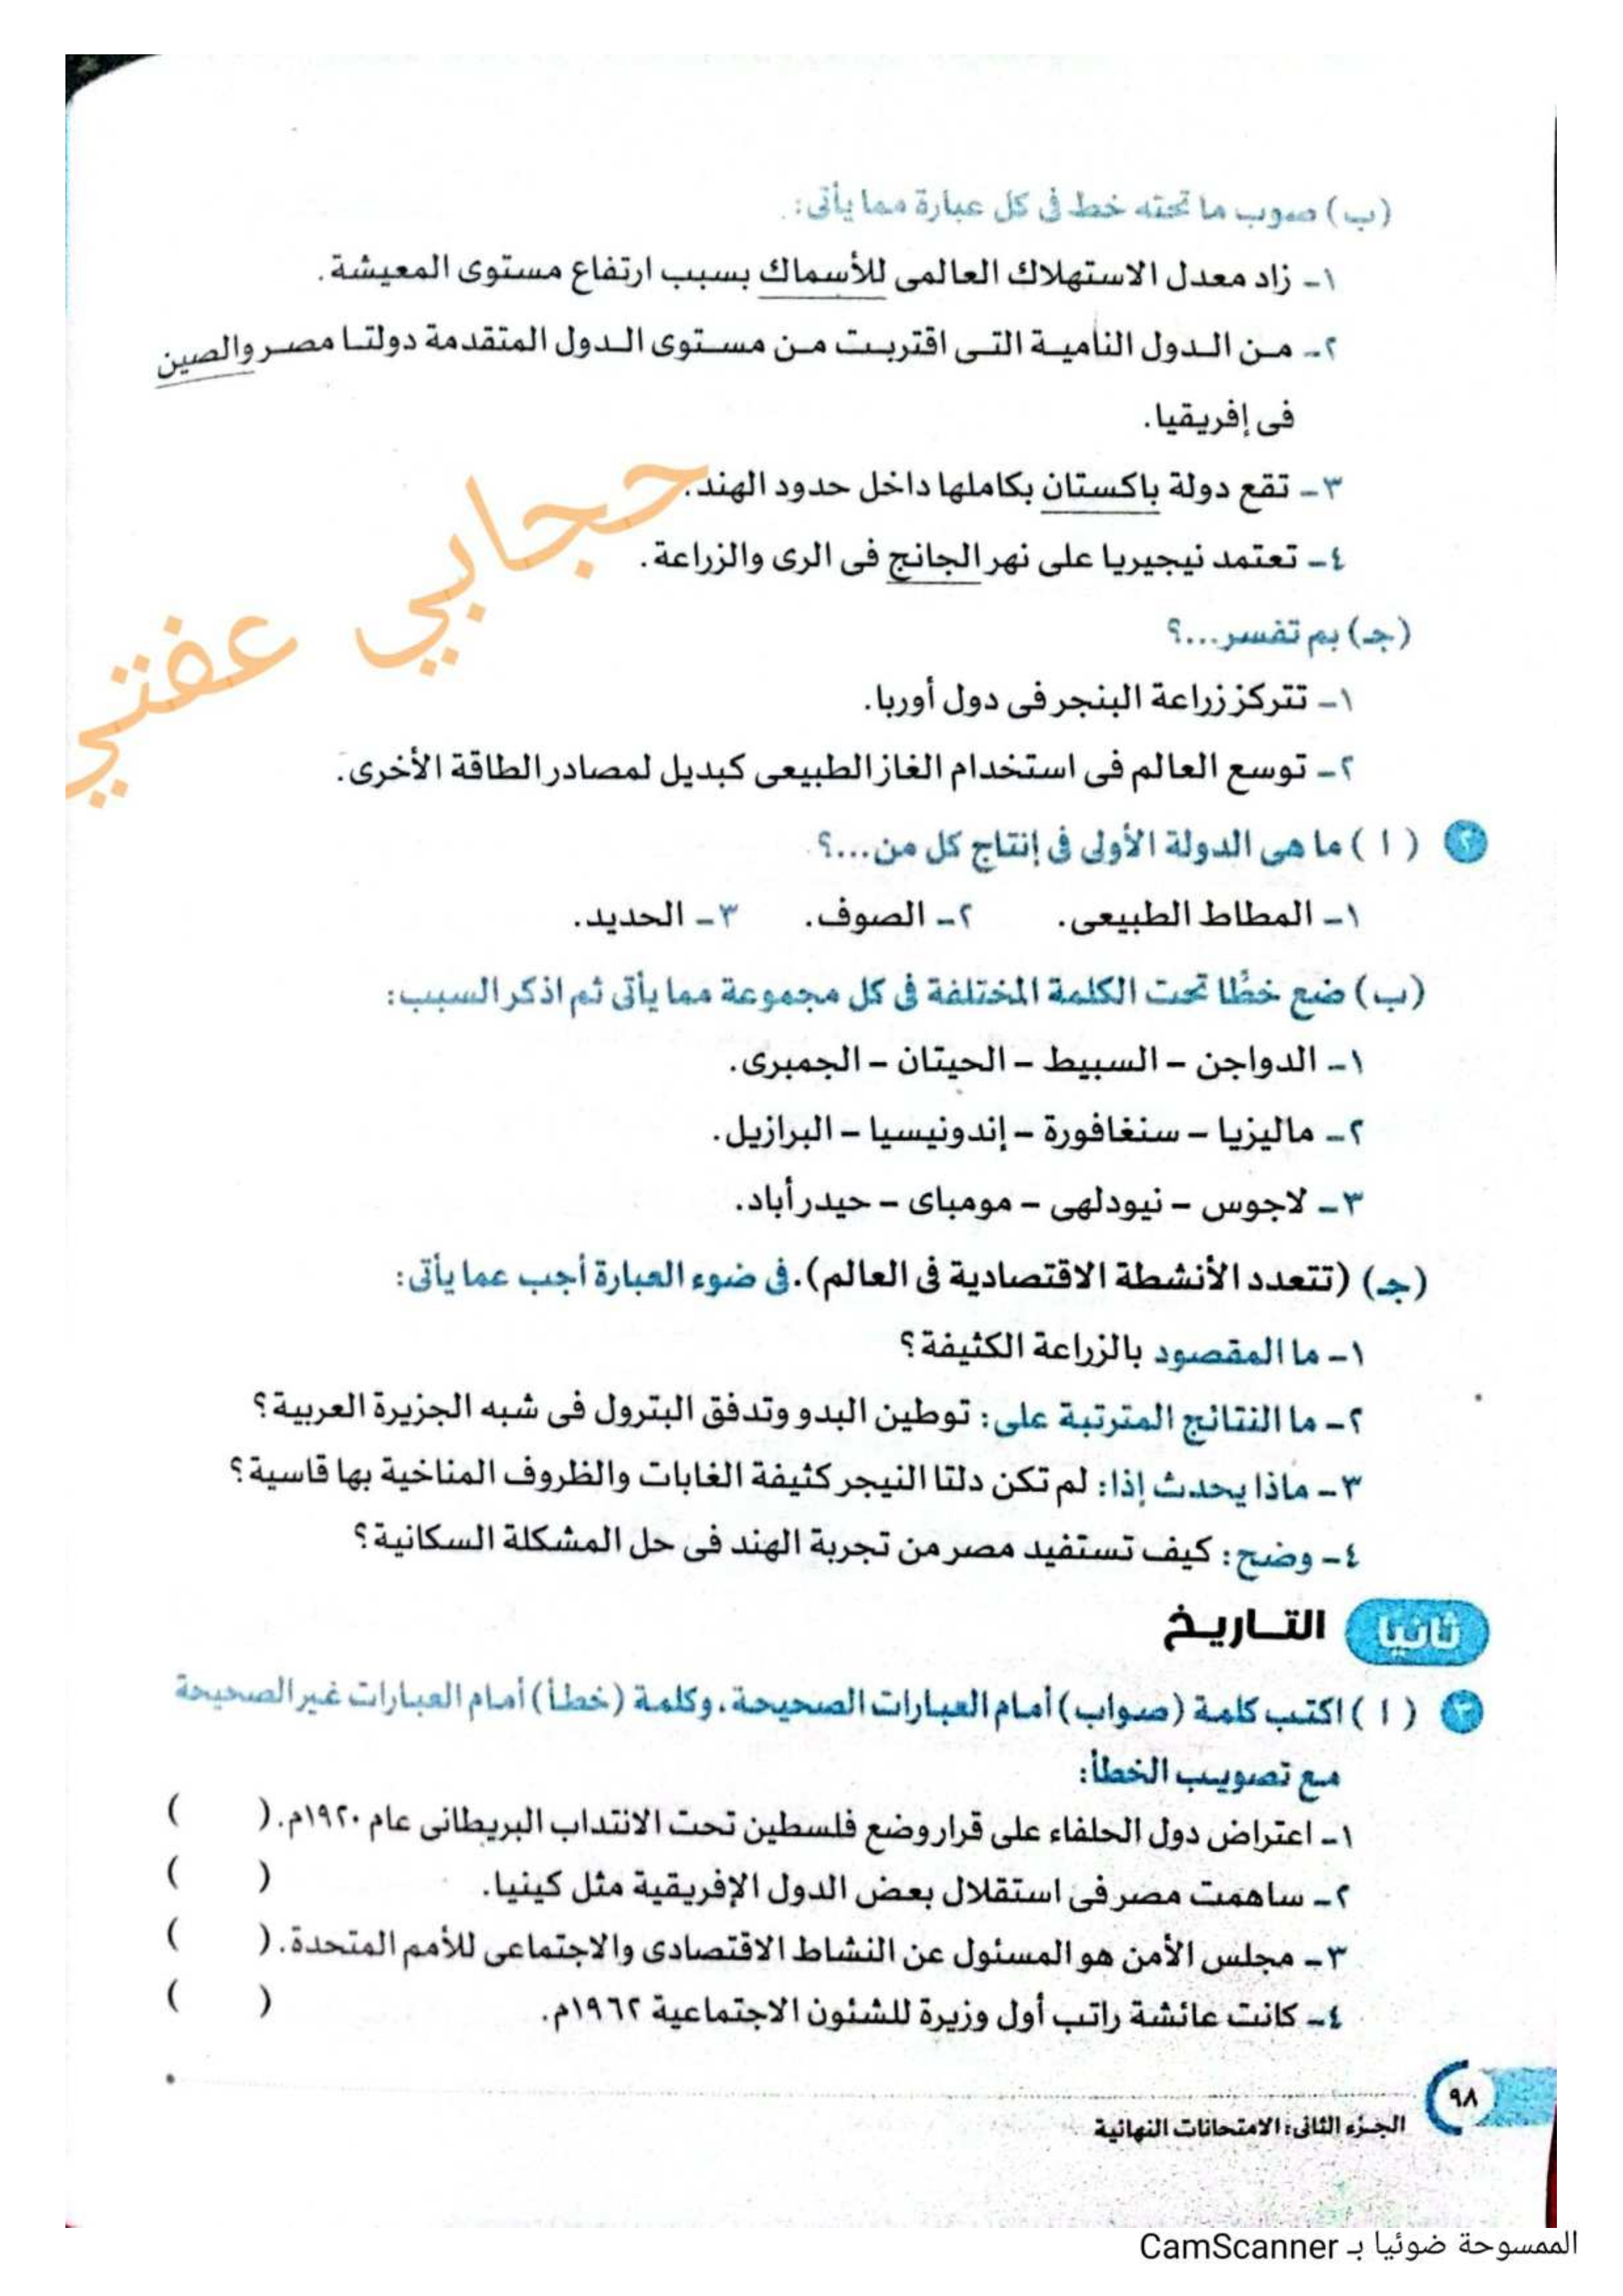 (ب) صوب ما تحته خط فى كل عبارة مما يأتى:
١- زاد معدل الاستهلاك العالمى للأسماك بسبب ارتفاع مستوى المعيشة.
٢- من الدول النامية التى اقتربت من مستوى الدول المتقدمة دولتا مصر والصين
فى إفريقيا.
٣- تقع دولة باكستان بكاملها داخل حدود الهند.
٤- تعتمد نيجيريا على نهر الجانج فى الرى والزراعة.
حجابي عفتي
(جـ) بم تفسر...؟
١- تتركز زراعة البنجر فى دول أوربا.
٢- توسع العالم فى استخدام الغاز الطبيعى كبديل لمصادر الطاقة الأخرى.
٢ (١) ما هى الدولة الأولى فى إنتاج كل من...؟
١- المطاط الطبيعى. ٢- الصوف. ٣- الحديد.
(ب) ضع خطًا تحت الكلمة المختلفة فى كل مجموعة مما يأتى ثم اذكر السبب:
١- الدواجن - السبيط - الحيتان - الجمبرى.
٢- ماليزيا - سنغافورة - إندونيسيا - البرازيل.
٣- لاجوس - نيودلهى - مومباى - حيدر أباد.
(جـ) (تتعدد الأنشطة الاقتصادية فى العالم). فى ضوء العبارة أجب عما يأتى:
١- ما المقصود بالزراعة الكثيفة؟
٢- ما النتائج المترتبة على: توطين البدو وتدفق البترول فى شبه الجزيرة العربية؟
٣- ماذا يحدث إذا: لم تكن دلتا النيجر كثيفة الغابات والظروف المناخية بها قاسية؟
٤- وضح: كيف تستفيد مصر من تجربة الهند فى حل المشكلة السكانية؟
ثانيا التاريخ
٣ (١) اكتب كلمة (صواب) أمام العبارات الصحيحة، وكلمة (خطأ) أمام العبارات غير الصحيحة
مع تصويب الخطأ:
١- اعتراض دول الحلفاء على قرار وضع فلسطين تحت الانتداب البريطانى عام ١٩٢٠م. ( )
٢- ساهمت مصر فى استقلال بعض الدول الإفريقية مثل كينيا. ( )
٣- مجلس الأمن هو المسئول عن النشاط الاقتصادى والاجتماعى للأمم المتحدة. ( )
٤- كانت عائشة راتب أول وزيرة للشئون الاجتماعية ١٩٦٢م. ( )
٩٨
الجزء الثانى: الامتحانات النهائية
الممسوحة ضوئيا بـ CamScanner